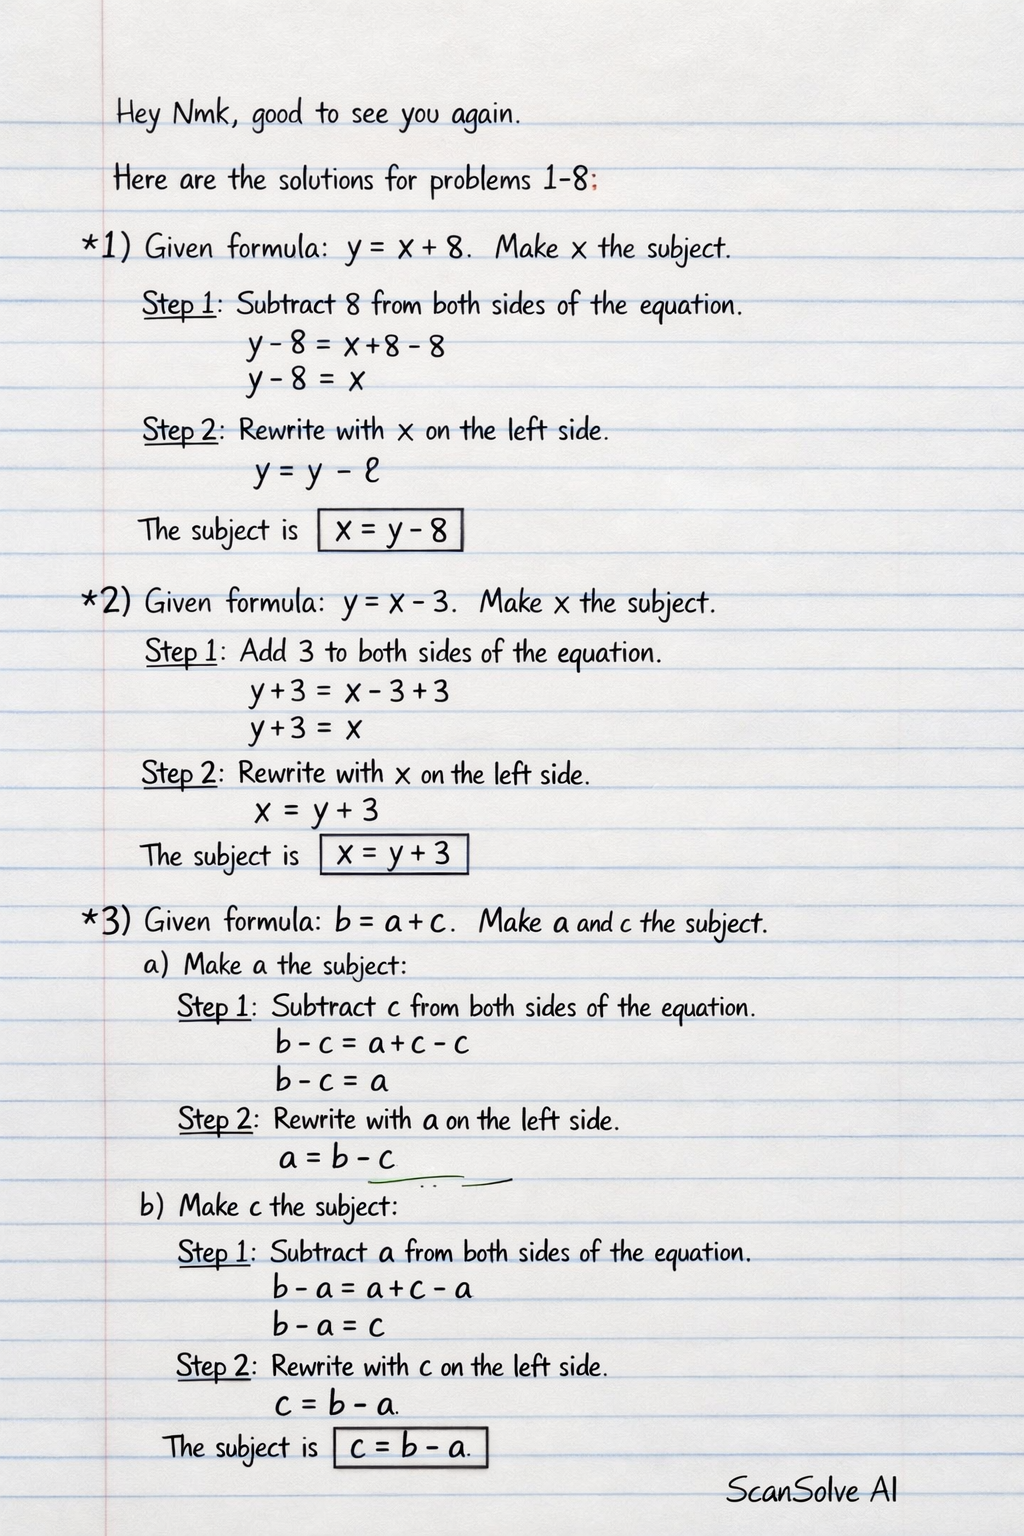 Hey Nmk, good to see you again.
Here are the solutions for problems 1-8:
*1) Given formula: y = x + 8. Make x the subject.
Step 1: Subtract 8 from both sides of the equation.
y - 8 = x+8 - 8
y - 8 = x
Step 2: Rewrite with x on the left side.
y = y - 8
The subject is x = y - 8
*2) Given formula: y = x - 3. Make x the subject.
Step 1: Add 3 to both sides of the equation.
y+3 = x - 3 + 3
y+3 = x
Step 2: Rewrite with x on the left side.
x = y + 3
The subject is x = y + 3
*3) Given formula: b = a + c. Make a and c the subject.
a) Make a the subject:
Step 1: Subtract c from both sides of the equation.
b - c = a+c - c
b - c = a
Step 2: Rewrite with a on the left side.
a = b - c
b) Make c the subject:
Step 1: Subtract a from both sides of the equation.
b - a = a+c - a
b - a = c
Step 2: Rewrite with c on the left side.
c = b - a.
The subject is c = b - a.
ScanSolve AI